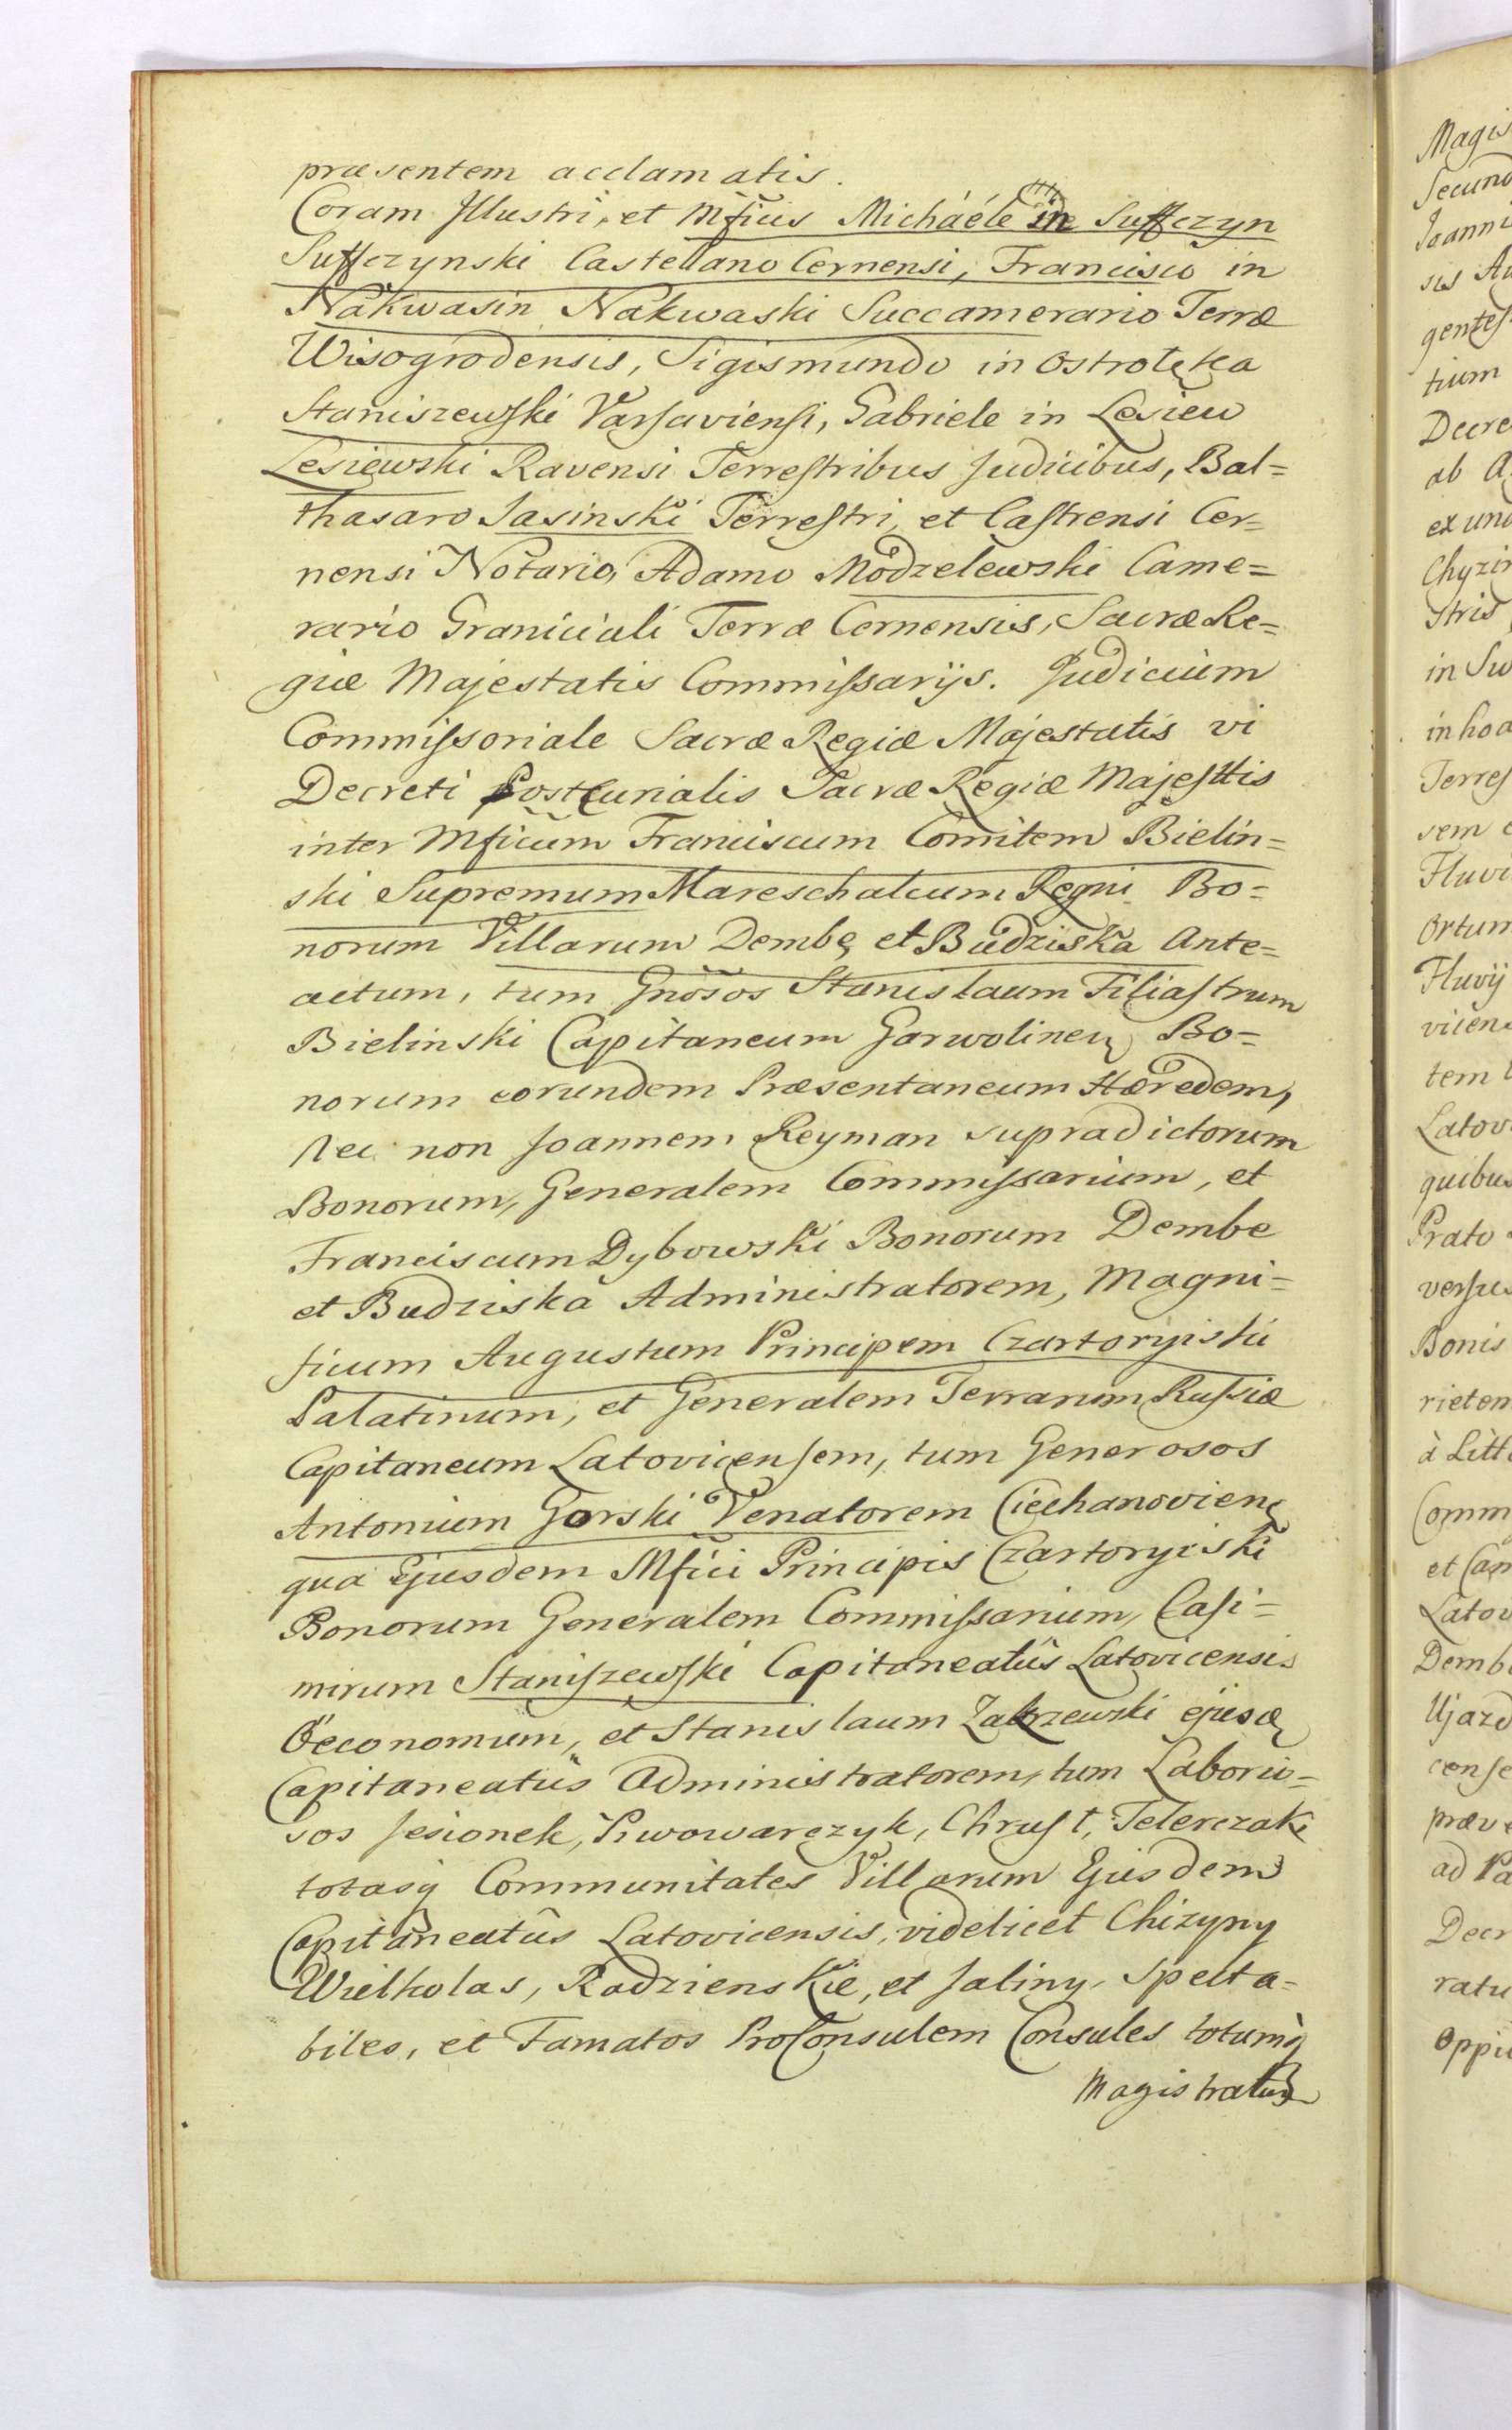 præsentem acclamatis.
Coram Jllustri, et Mficis Michaéle in Suffczyn
Suffczynski Castellano Cernensi, Francisco in
Nakwasin Nakwaski Succamerario Terræ
Wisogrodensis, Sigismundo in Ostrolęka
Staniszewſki Varſavienſi, Gabriele in Lesiew
Lesiewski Ravensi Terreſtribus Judicibus, Bal=
thasaro Jasinski Terreſtri, et Caſtrensi Cer=
nensi Notario, Adamo Modzelewski Came=
rario Graniciali Terræ Cernensis, Sacræ Re=
giæ Majestatis Commiſsarijs. Judicium
Commiſsoriale Sacræ Regiæ Majestatis vi
Decreti Postcurialis Sacræ Regiæ Majeſttis
inter Mficum Franciscum Comitem Bielin=
ski Supremum Mareschalcum Regni Bo=
norum Villarum Dembe, et Budziska Ante=
actum, tum Gnosos Stanislaum Filiaſtrum
Bielinski Capitaneum Garwolinen Bo=
norum eorundem Præsentaneum Hæredem,
Nec non Joannem Reyman supradictorum
Bonorum, Generalem Commiſsarium, et
Franciscum Dybowski Bonorum Dembe
et Budziska Administratorem, Magni=
ficum Augustum Principem Czartoryiski
Palatinum, et Generalem Terrarum Ruſsiæ
Capitaneum Latovicenſem, tum Generosos
Antonium Gorski Venatorem Ciechanovien
qua Ejusdem Mfici Principis Czartoryiski
Bonorum Generalem Commiſsarium, Caſi=
mirum Staniſzewſki Capitaneatûs Latovicensis
Oeconomum, et Stanislaum Zakrzewski ejusd
Capitaneatûs Administratorem, tum Laborio=
sos Jesionek, Piwowarczyk, Chruſt, Telerczak
totasq Communitates Villarum Ejusdem
Capitaneatûs Latovicensis, videlicet Chizyny
Wielkolas, Radzienskie, et Jaliny, Specta=
biles, et Famatos ProConsulem Consules totumq
Magistratum